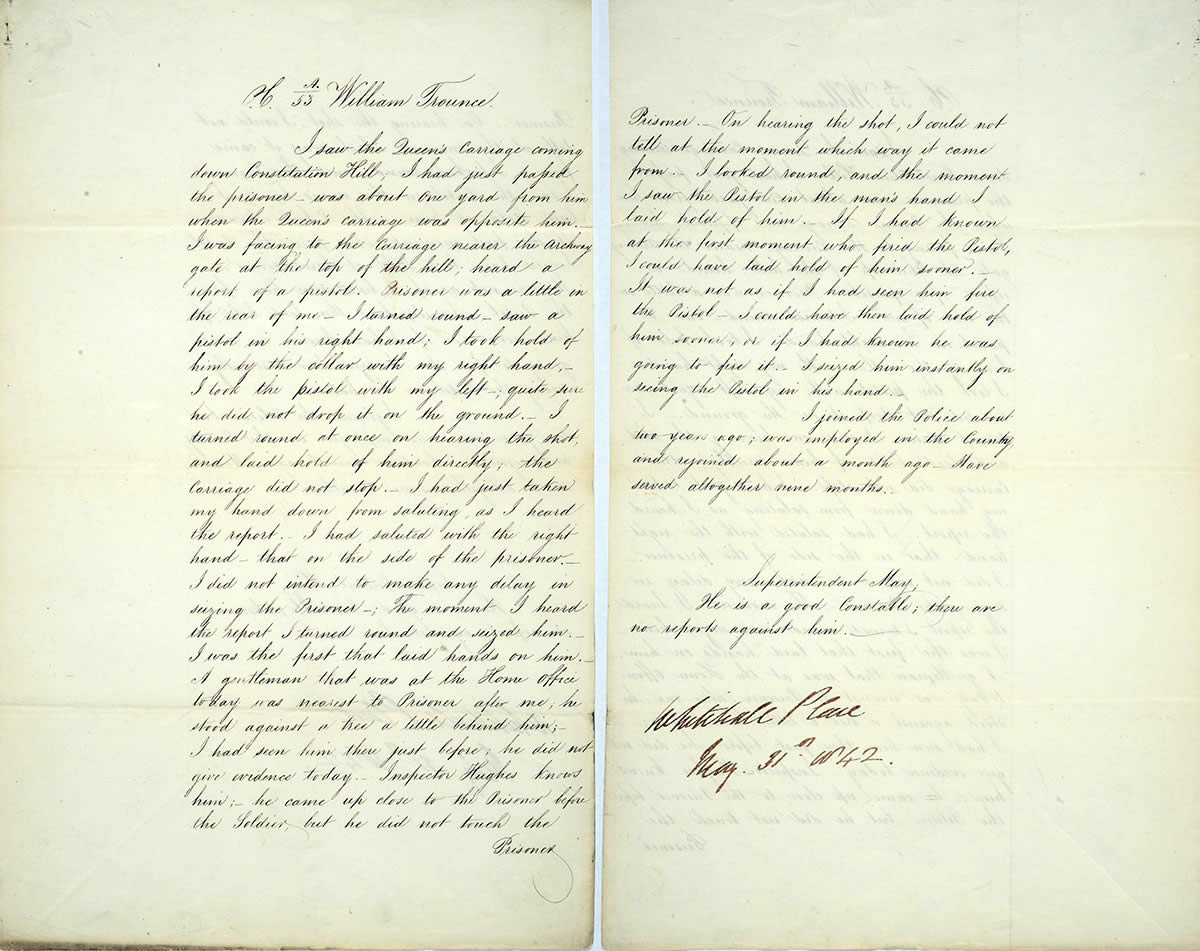 P.C. A/53 William Trounce.
I saw the Queen's Carriage coming
down Constitution Hill; I had just passed
the prisoner – was about one yard from him
when the Queen's carriage was opposite him. –
I was facing to the Carriage nearer the Archway
gate at the top of the hill; heard a
report of a pistol. Prisoner was a little in
the rear of me – I turned round – saw a
pistol in his right hand; I took hold of
him by the collar with my right hand, –
I took the pistol with my left –; quite sure
he did not drop it on the ground. – I
turned round at once on hearing the shot,
and laid hold of him directly; the
Carriage did not stop. – I had just taken
my hand down from saluting, as I heard
the report. – I had saluted with the right
hand – that on the side of the prisoner. –
I did not intend to make any delay in
seizing the Prisoner –; The moment I heard
the report I turned round and seized him. –
I was the first that laid hands on him. –
A gentleman that was at the Home Office
today was nearest to Prisoner after me; he
stood against a tree a little behind him; –
I had seen him there just before; he did not
give evidence today. – Inspector Hughes knows
him; – he came up close to the Prisoner before
the Soldier, but he did not touch the
Prisoner
Prisoner. – On hearing the shot, I could not
tell at the moment which way it came
from. – I looked round, and the moment
I saw the Pistol in the man's hand I
laid hold of him. – If I had known
at the first moment who fired the Pistol,
I could have laid hold of him sooner. –
It was not as if I had seen him fire
the Pistol – I could have then laid hold of
him sooner, or if I had known he was
going to fire it. – I seized him instantly on
seeing the Pistol in his hand. –
I joined the Police about
two years ago; was employed in the County,
and rejoined about a month ago – Have
served altogether nine months. –
Superintendent May;
He is a good Constable; there are
no reports against him. –
Whitehall Place
May. 31st 1842.